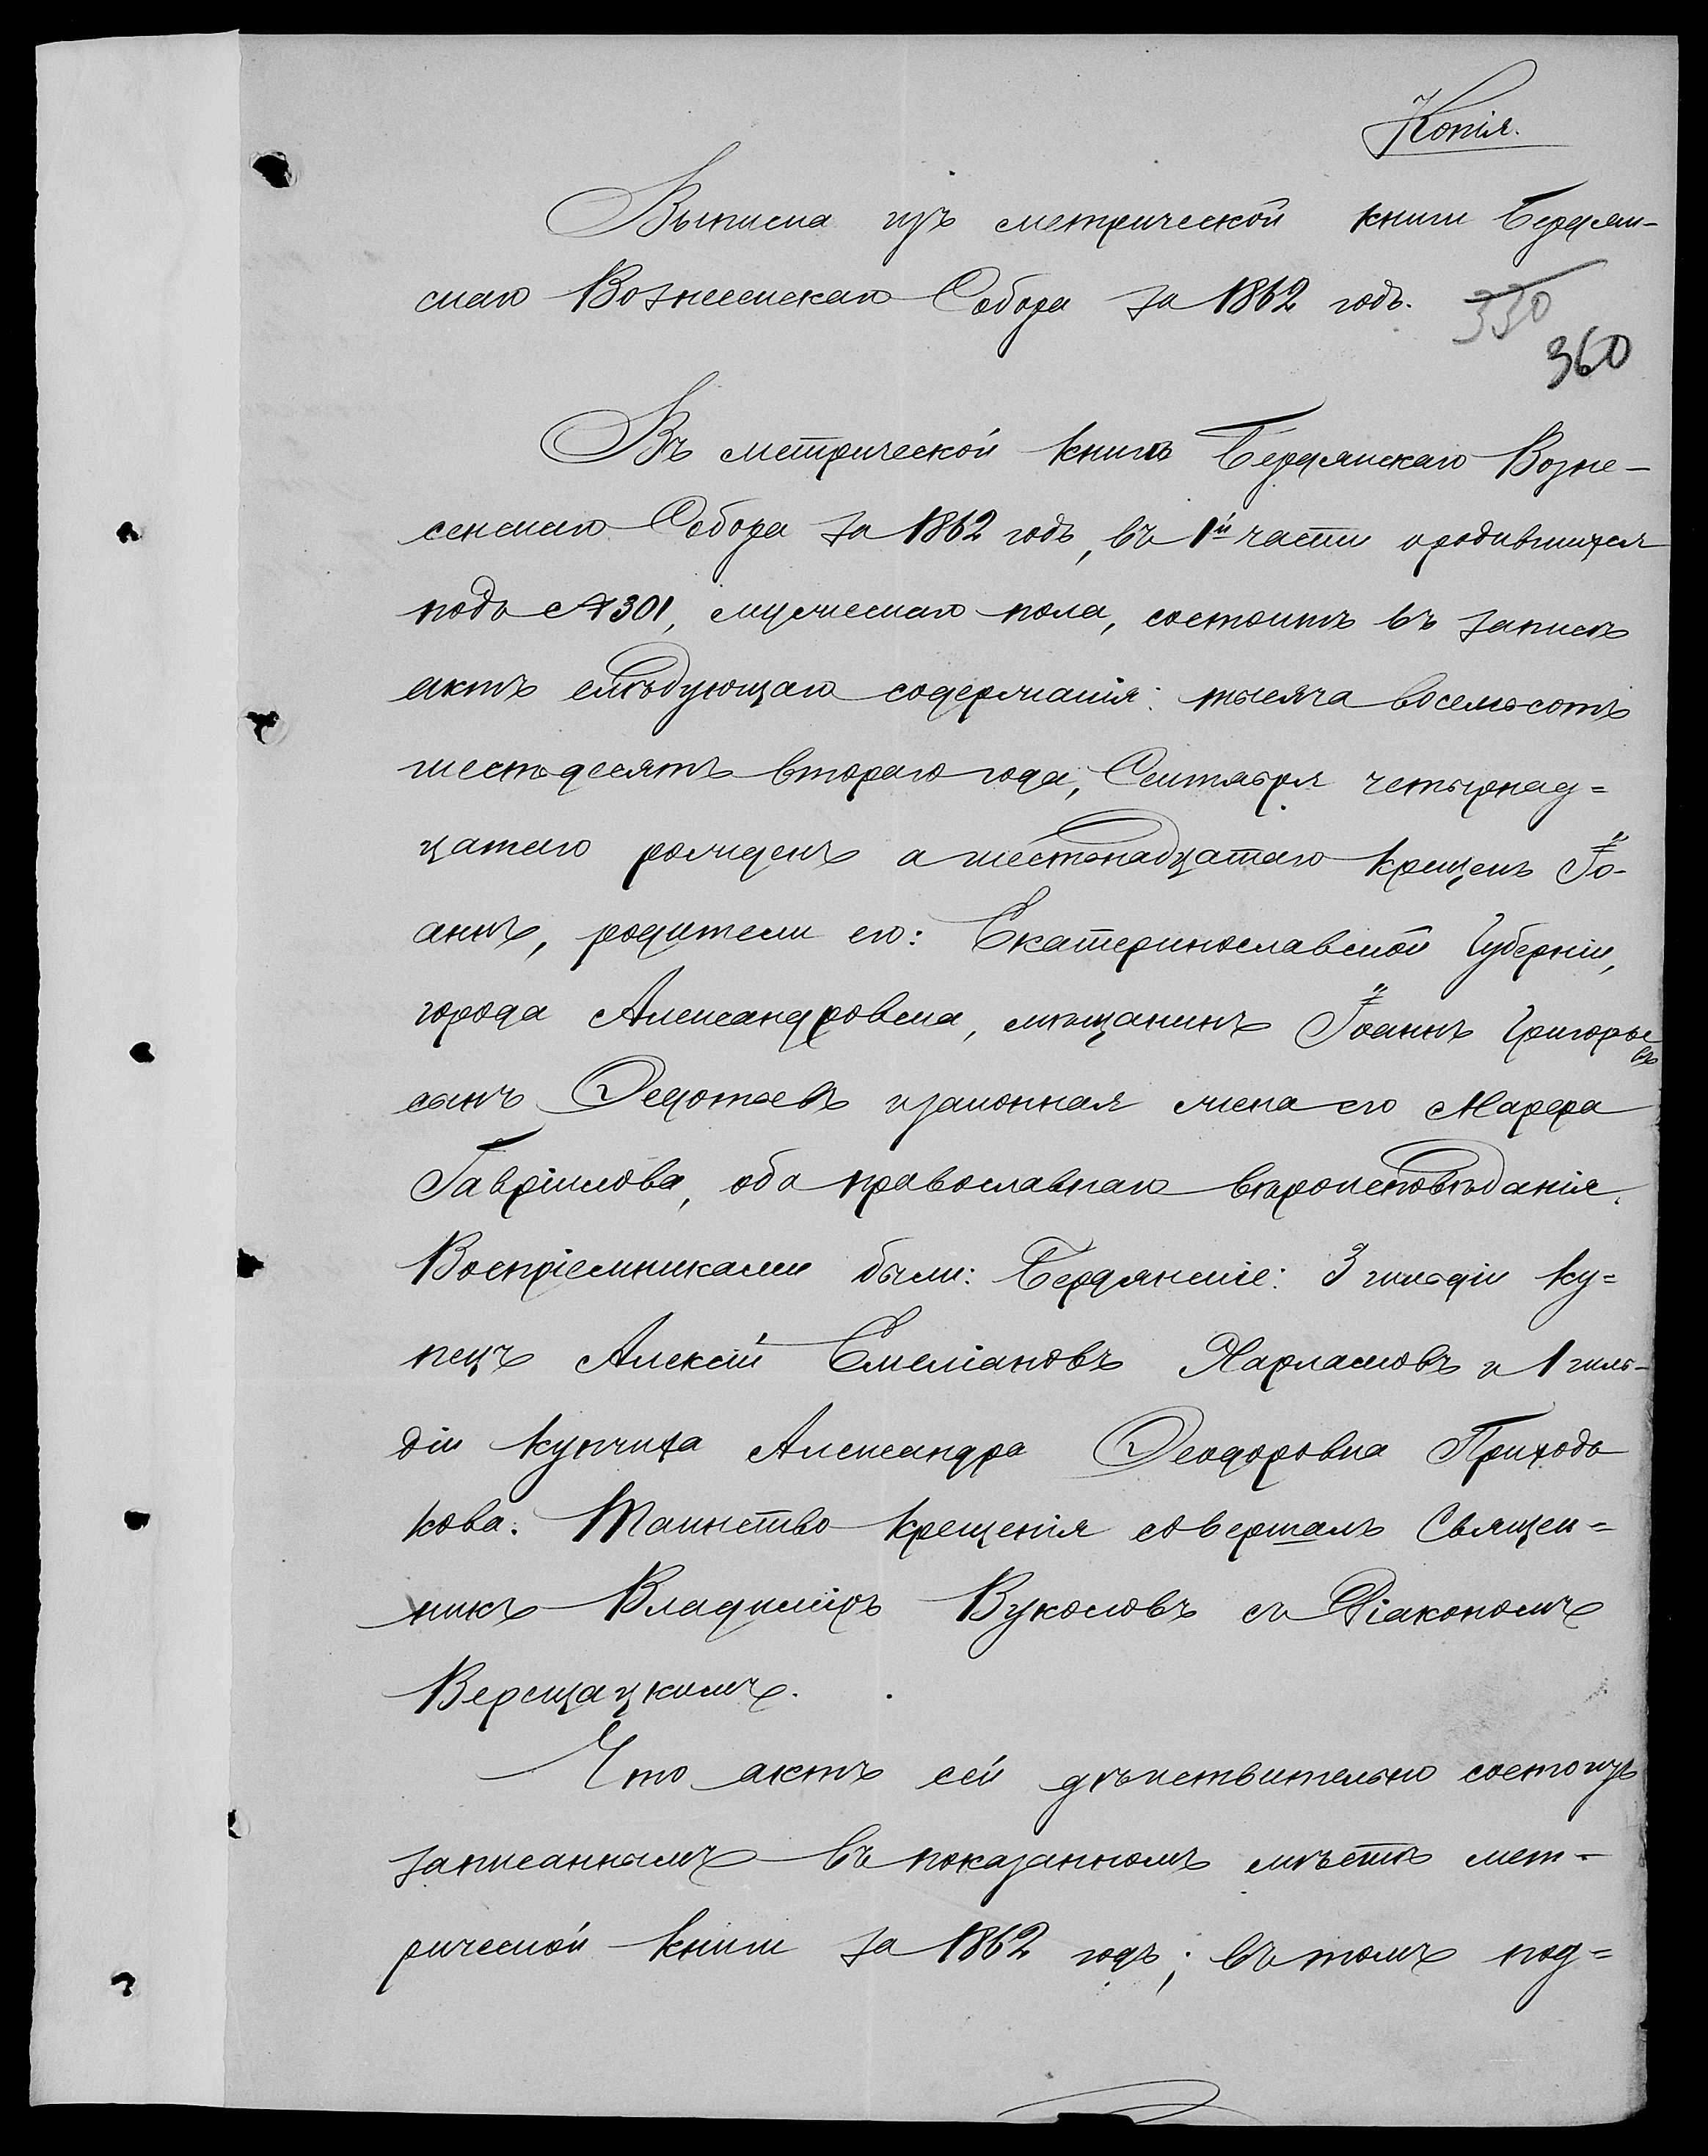 Копія.
Выписка изъ метрической книги Бердян-
скаго Вознесенскаго Собора за 1862 годъ.
330
360
Въ метрической книгѣ Бердянскаго Возне-
сенскаго Собора за 1862 годъ, въ 1й части о родившихся
подъ № 301, мужескаго пола, состоитъ въ запискѣ
актъ слѣдующаго содержанія: тысяча восемьсотъ
шестьдесятъ втораго года, Сентября четырнад=
цатаго рожденъ а шестьнадцатаго крещенъ Іо-
аннъ, родители его: Екатеринославской Губерніи,
города Александровска, мѣщанинъ Іоаннъ Григорье
въ
сынъ и законная жена его Марфа
Гавріилова, оба православнаго вѣроисповѣданія.
Воспріемниками были: Бердянскіе: 3 гильдіи ку=
пецъ Алексѣй Емеліановъ Харламовъ и 1 гиль-
діи купчиха Александра Ѳеодоровна Приходь
кова. Таинство крещенія совершалъ Священ=
никъ Владиміръ Вуколовъ съ Діакономъ
Верещацкимъ.
Что актъ сей дѣйствительно состоитъ
записаннымъ въ показанномъ мѣстѣ мет-
рической книги за 1862 годъ; въ томъ под=